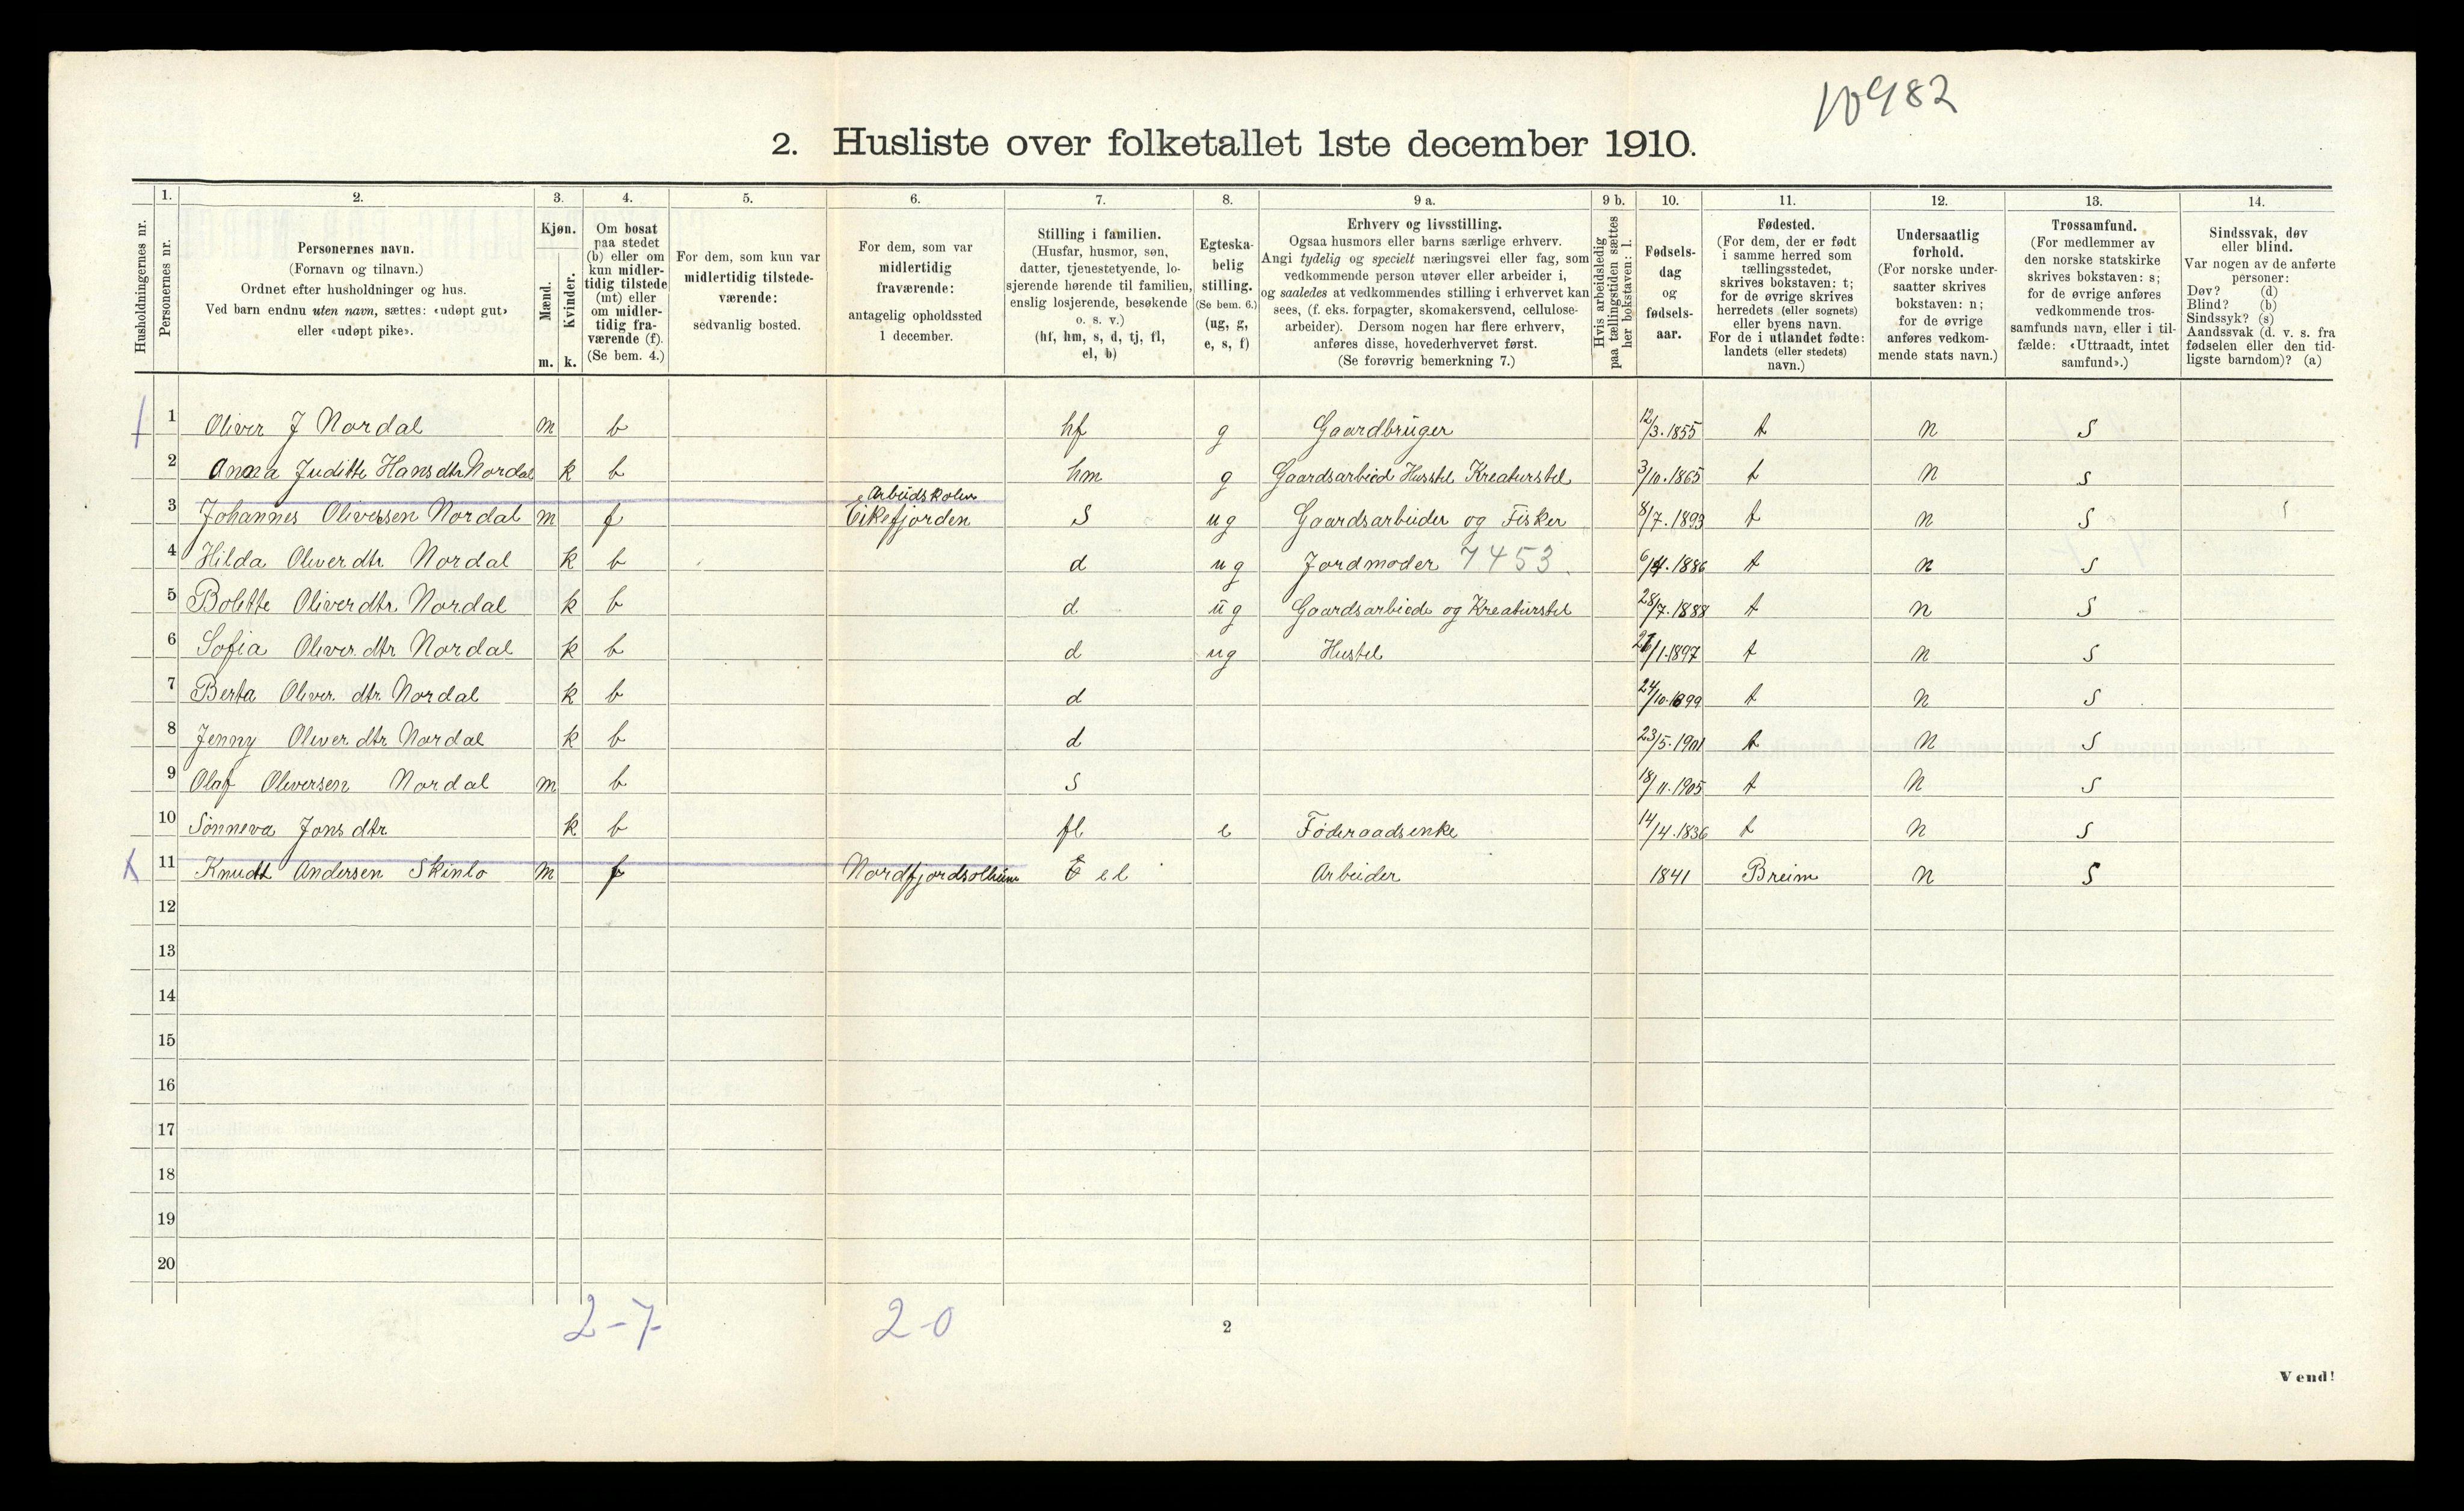 10982
2. Husliste over folketallet 1ste december 1910.
Husholdningernes nr.
1. Personernes nr.
2. Personernes navn. (Fornavn og tilnavn.) Ordnet efter husholdninger og hus. Ved barn endnu uten navn, sættes: «udøpt gut» eller «udøpt pike».
3. Kjøn. Mænd. m. Kvinder. k.
4. Om bosat paa stedet (b) eller om kun midlertidig tilstede (mt) eller om midlertidig fraværende (f). (Se bem. 4.)
5. For dem, som kun var midlertidig tilstedeværende: sedvanlig bosted.
6. For dem, som var midlertidig fraværende: antagelig opholdssted 1 december.
7. Stilling i familien. (Husfar, husmor, søn, datter, tjenestetyende, losjerende hørende til familien, enslig losjerende, besøkende o. s. v.) (hf, hm, s, d, tj, fl, el, b)
8. Egteskabelig stilling. (Se bem. 6.) (ug, g, e, s, f)
9 a. Erhverv og livsstilling. Ogsaa husmors eller barns særlige erhverv. Angi tydelig og specielt næringsvei eller fag, som vedkommende person utøver eller arbeider i, og saaledes at vedkommendes stilling i erhvervet kan sees, (f. eks. forpagter, skomakersvend, cellulosearbeider). Dersom nogen har flere erhverv, anføres disse, hovederhvervet først. (Se forøvrig bemerkning 7.)
9 b. Hvis arbeidsledig paa tællingstiden sættes her bokstaven: l.
10. Fødselsdag og fødselsaar.
11. Fødested. (For dem, der er født i samme herred som tællingsstedet, skrives bokstaven: t; for de øvrige skrives herredets (eller sognets) eller byens navn. For de i utlandet fødte: landets (eller stedets) navn.)
12. Undersaatlig forhold. (For norske undersaatter skrives bokstaven: n; for de øvrige anføres vedkommende stats navn.)
13. Trossamfund. (For medlemmer av den norske statskirke skrives bokstaven: s; for de øvrige anføres vedkommende trossamfunds navn, eller i tilfælde: «Uttraadt, intet samfund».)
14. Sindssvak, døv eller blind. Var nogen av de anførte personer: Døv? (d) Blind? (b) Sindssyk? (s) Aandssvak (d. v. s. fra fødselen eller den tidligste barndom)? (a)
1 Oliver J Nordal m b hf g Gaardbruger 12/3.1855 t n s
2 Anna Juditte Hansdtr Nordal k b hm g Gaardsarbied Husstel Kreaturstel 3/10.1865 t n s
3 Johannes Oliversen Nordal m f Arbeidskolen Eikefjorden s ug Gaardsarbeider og Fisker 8/7.1893 t n s
4 Hilda Oliverdtr Nordal k b d ug Jordmoder 7453 6/4.1886 t n s
5 Bolette Oliverdtr Nordal k b d ug Gaardsarbiede og Kreaturstel 28/7.1888 t n s
6 Sofia Oliver dtr Nordal k b d ug Hustel /1.1897 t n s
7 Berta Oliver dtr Nordal k b d 24/10.1899 t n s
8 Jenny Oliver dtr Nordal k b d 23/5.1901 t n s
9 Olaf Oliversen Nordal m b s 18/11.1905 t n s
10 Sønneva Jons dtr k b fl e Føderaadsenke 14/4.1836 t n s
x 11 Knudt Andersen Skinlo m f el Arbeider 1841 Breim n s
12
13
14
15
16
17
18
19
20
2-7 2-0
2
Vend!